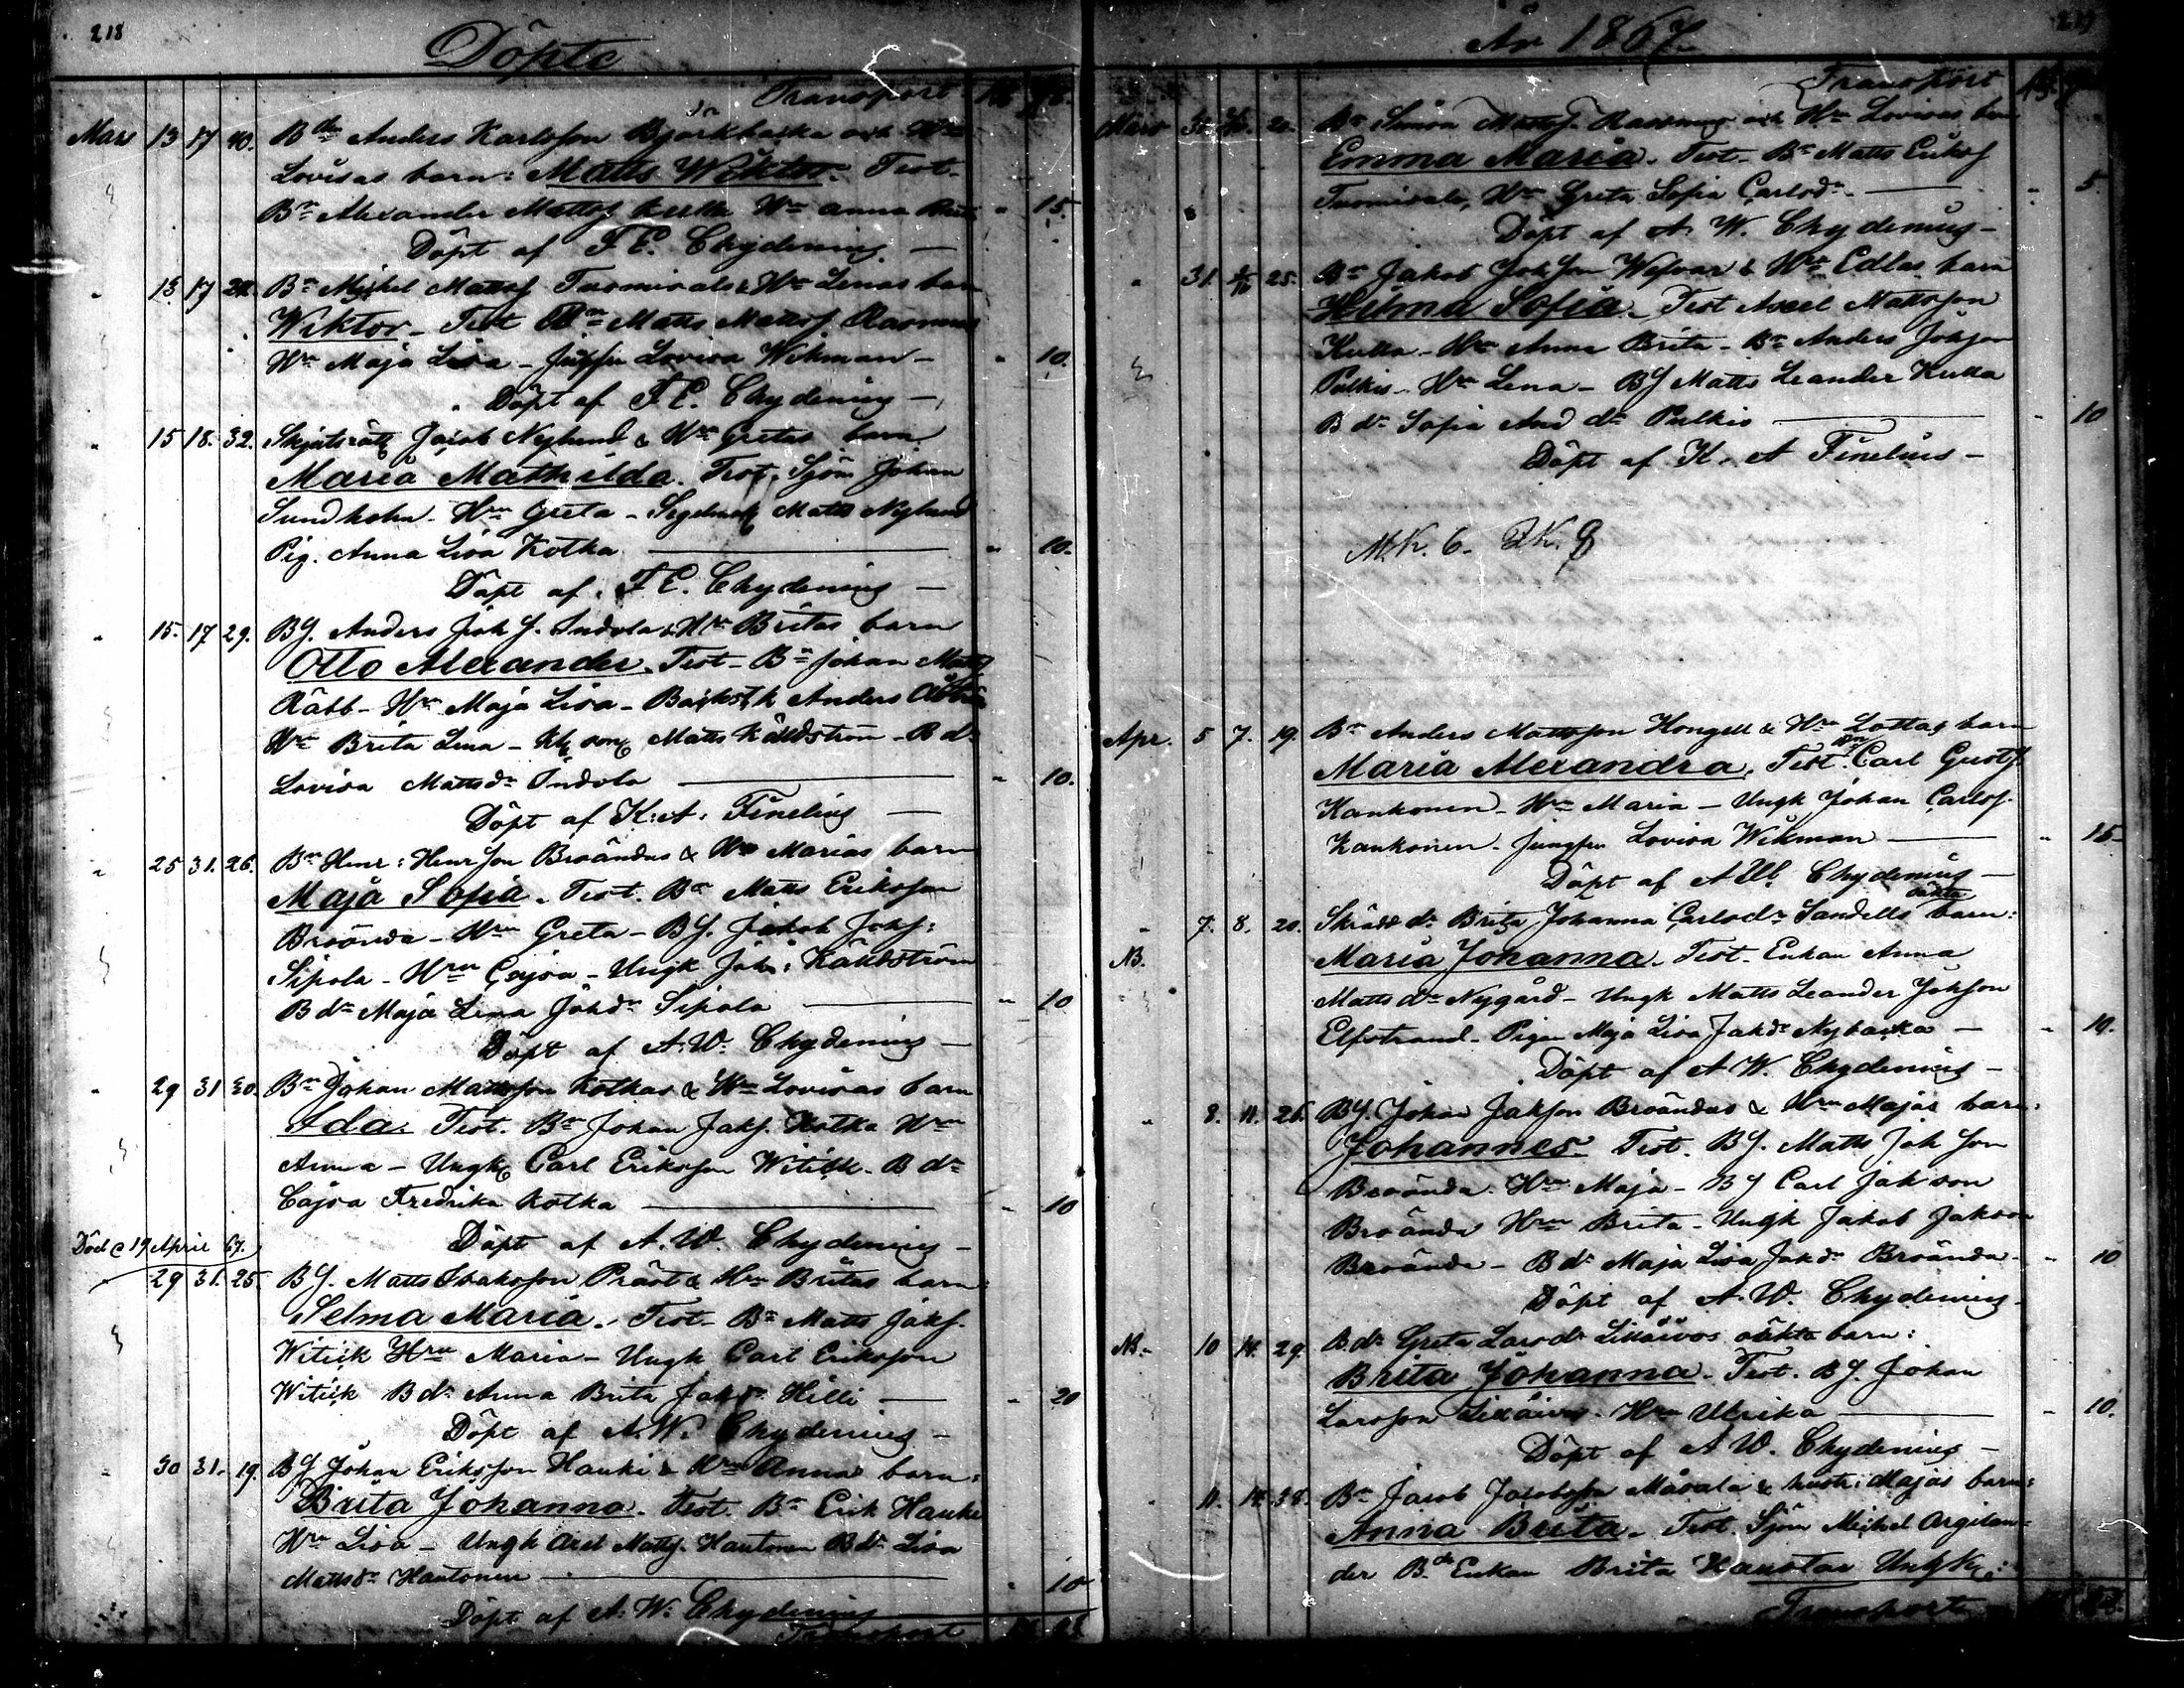 218
Döpte
Transport
Mars 13 17 40. Bdn Anders Karlsson Björkbacka och Hru
Lovisas barn: Matts Wiktor. Test.
Bn Alexander Mattsf Kulla Hru Anna Brita " 15.
Döpt af F. E. Chydenius —
" 13 17 28. Bn Michel Mattsf Tuomisalo & Hru Lenas barn
Wiktor. Test Bn Matts Mattsf. Rasmus
Hru Maja Lisa – Jungfru Lovisa Wikman – " 10.
Döpt af F. E. Chydenius –
" 15 18. 32. Jacob Nylund & Hru Gretas barn
Maria Mathilda. Test. Sjöm Johan
Sundholm. Hru Greta – Segelmak Matts Nylund
Pig. Anna Lisa Kotka — " 10.
Döpt af F. E. Chydenius —
" 15. 17 29. BJ. Anders Joh J. Indola & Hru Britas barn
Otto Alexander. Test. Bn Johan Mattsf
Räbb – Hru Maja Lisa – Anders
Hru Brita Lena – Matts Källström – B dr
Lovisa Mattsdr Indola — " 10.
Döpt af K. A. Finelius —
" 25 31. 26. Bn Henr: Henrson Broändas & Hru Marias barn
Maja Sofia. Test. Bn Matts Eriksson
Broända – Hru Greta – BJ. Jakob Jakf:
Sipola – Hru Cajsa – Ungk Joh: Källström
B dr Maja Lena Johdr Sipola — " 10
Döpt af A. W. Chydenius —
" 29 31 30. Bn Johan Mattsson Kotkas & Hru Lovisas barn
Ida. Test. Bn Johan Jakf. Kotka Hru
Anna – Ungk Carl Eriksson Witick. B dr
Cajsa Fredrika Kotka — " 10
Döpt af A. W. Chydenius –
Död e 19 April 67.
" 29 31. 25. BJ. Matts Isaksson Präst & Hru Britas barn
Selma Maria. Test. Bn Matts Jakf.
Witick Hru Maria – Ungk Carl Eriksson
Witick B dr Anna Brita Jakdr Hilli — " 20
Döpt af A. W. Chydenius –
" 30 31. 19. BJ Johan Eriksson Hauki & Hru Annas barn:
Brita Johanna. Test. Bn Erik Hauki
Hru Lisa – Ungk Axel Mattsf. Hautonen B dr Lisa
Mattsdr Hautonen — " 10
Döpt af A. W. Chydenius
Transport
År 1867
Transport
Mars 20. Bn Simon Mattsf. Rasmus och Hru Lovisas barn
Emma Maria. Test. Bn Matts Eriksf
Tuomisalo, Hru Greta Sofia Carlsdr — " 5
Döpt af A. W. Chydenius –
" 31. 25. Bn Jakob Johson & Hru Edlas barn
Hilma Sofia. Test Axel Mattsson
Kulla – Hru Anna Brita – Bn Anders Johson
Pulkis – Hru Lena – BJ Matts Leander Kulla
B dr Sofia And dr Pulkis — " 10
Döpt af K. A Finelius –
M.K. 6. Q.K. 8
Apr. 5 7. 19. Bn Anders Mattsson Hongell & Hru Lottas barn
Maria Alexandra. Test. Bn Carl Gustf
Kankonen – Hru Maria – Ungk Johan Carlsf.
Kankonen. Jungfru Lovisa Wikman — " 15
Döpt af A W. Chydenius –
" 7. 8. 20. Skrädd dr Brita Johanna Carlsdr Sandells oäkta barn:
NB. Maria Johanna. Test. Enkan Anna
Matts dr Nygård – Ungk Matts Leander Johson
Elfstrand – Pigan Maja Lisa Jakdr Nybacka — " 10.
Döpt af A W. Chydenius –
" 8. 11. 26. BJ. Johan Jakson Broändas & Hru Majas barn:
Johannes. Test. BJ. Matts Joh Son
Broända. Hru Maja – BJ Carl Jakson
Broända Hru Brita – Ungk Jakob Jakson
Broända – B dr Maja Lisa Jakdr Broända – " 10
Döpt af A. W. Chydenius –
NB. 10 14. 29. B. dr Greta Larsdr oäkta barn:
Brita Johanna. Test. BJ. Johan
Larsson Hru Ulrika — " 10.
Döpt af A W. Chydenius –
" 11. 14. 38. Bn Jacob Jacobsson Måsala & hustr: Majas barn:
Anna Brita. Test. Sjöm Michel Argilan-
der B. Enkan Brita Ungk:
Transport